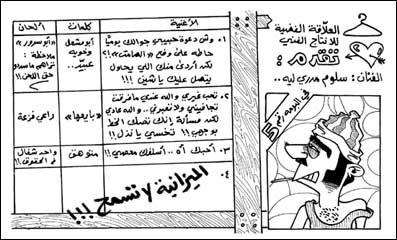 العلّاقة الفضية
للانتاج الفني
تقدم:
الفنان: سلوم مدري ليه..
في البومه رقم 5
الأغنية
كلمات
ألحان
١. وش دعوة حبيبي جوالك يوميًّا
حاطه على وضع «الصامت»!؟
لكن أدري منك اللي يحاول
يتصل عليك يا شين!!!
أبو مشعل
وخويه
عبيّد..
«أبو سرور»
ملاحظة:
تراهم ما سددو
حق اللحن!!
٢. تحب غيري والله عندي ما فرقت
تجافيني ولا تعبرني.. والله عادي
لكن مسألة إنك تصك الخط
بوجهي!! تخسي يا نذل!!
«بايعها»
راعي فزعة
٣. أحبك آه.. أسلفك معصي!!
متوهق
واحد شغال
في الحقوق!!
٤.
الميزانية لا تسمح!!!